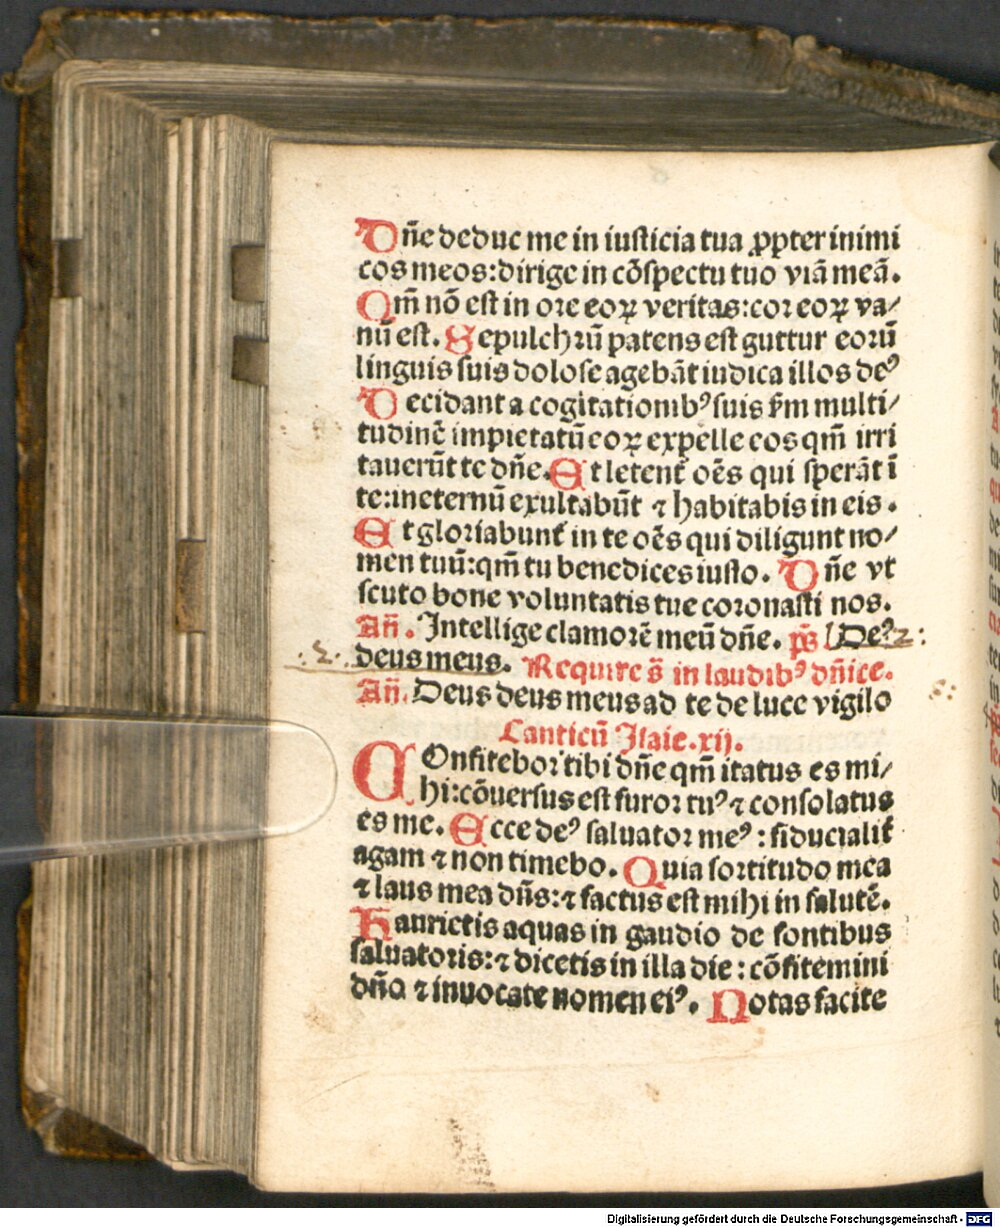 Dñe deduc me in iusticia tua ꝓpter inimi
cos meos:dirige in cōspectu tuo viā meā.
Qm̄ nō est in ore eoꝝ veritas:cor eoꝝ va/
nū est. Sepulchrū patens est guttur eorū
linguis suis dolose agebāt iudica illos deꝰ
Decidant a cogitationibꝰ suis ẜm multi/
tudinē impietatū eoꝝ expelle eos qm̄ irri
tauerūt te dñe. Et letent᷑ oēs qui sperāt ī
te:in eternū exultabūt ⁊ habitabis in eis.
Et gloriabunt᷑ in te oēs qui diligunt no/
men tuū:qm̄ tu benedices iusto. Dñe vt
scuto bone voluntatis tue coronasti nos.
Añ. Intellige clamorē meū dñe. p̄s Deꝰ 2:
:2. deus meus. Require s̄ in laudibꝰ dñice.
Añ. Deus deus meus ad te de luce vigilo
Canticū Isaie.xij.
COnfitebor tibi dñe qm̄ iratus es mi/
hi:cōuersus est furor tuꝰ ⁊ consolatus
es me. Ecce deꝰ saluator meꝰ : fiducialit᷑
agam ⁊ non timebo. Quia fortitudo mea
⁊ laus mea dñs:⁊ factus est mihi in salutē.
Haurietis aquas in gaudio de fontibus
saluatoris:⁊ dicetis in illa die : cōfitemini
dño ⁊ inuocate nomen eiꝰ. Notas facite
Digitalisierung gefördert durch die Deutsche Forschungsgemeinschaft - DFG